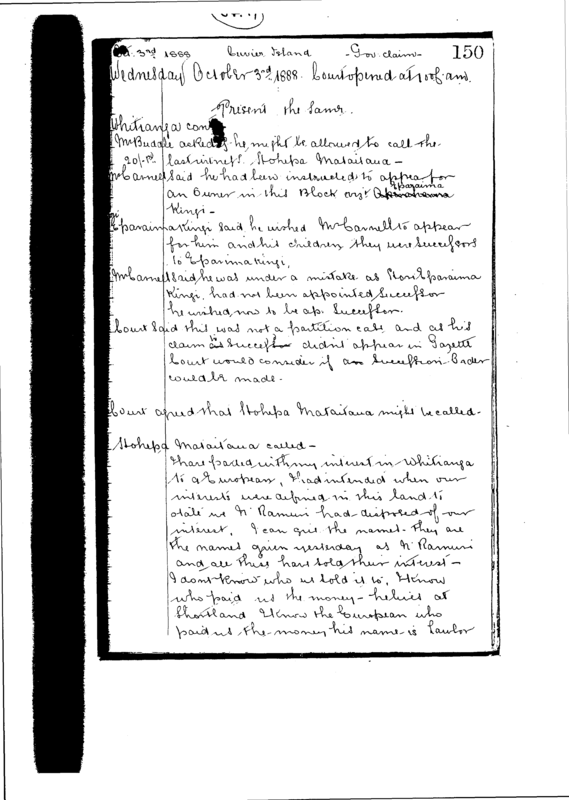 Oct. 3rd 1888 Cuvier Island - Gov. claim - 150
Wednesday October 3rd, 1888. Court opened at 10 of. am.
Present the same.
Whitianga cont
Mr Buddle asked if he might be allowed to call the
20/- pd last witness. Hohepa Mataitaua -
Mr Carnell said he had been instructed to appear for
an Owner in this Block Eparaima
Kingi -
Eparaima Kingi said he wished Mr Carnell to appear
for him and his children they were Successors
to Eparima Kingi,
Mr Carnell said he was under a mistake as Eparaima
Kingi, had not been appointed Successor
he wished now to be ap. Successor.
Court said this was not a partition case and as his
claim as Successor didn't appear in Gazette
Court would consider if an Succession Order
could be made.
Court agreed that Hohepa Mataitaua might be called.
Hohepa Mataitaua called -
I have parted with my interest in Whitianga
to a European, I had intended when our
interests were defined in this land to
state we N' Ramuri had disposed of our
interest. I can give the names - they are
the names given yesterday as N' Ramuri
and all these have sold their interest -
I dont know who we sold it to, I know
who paid us the money - he lives at
Shortland I know the European who
paid us the money his name is Lawlor